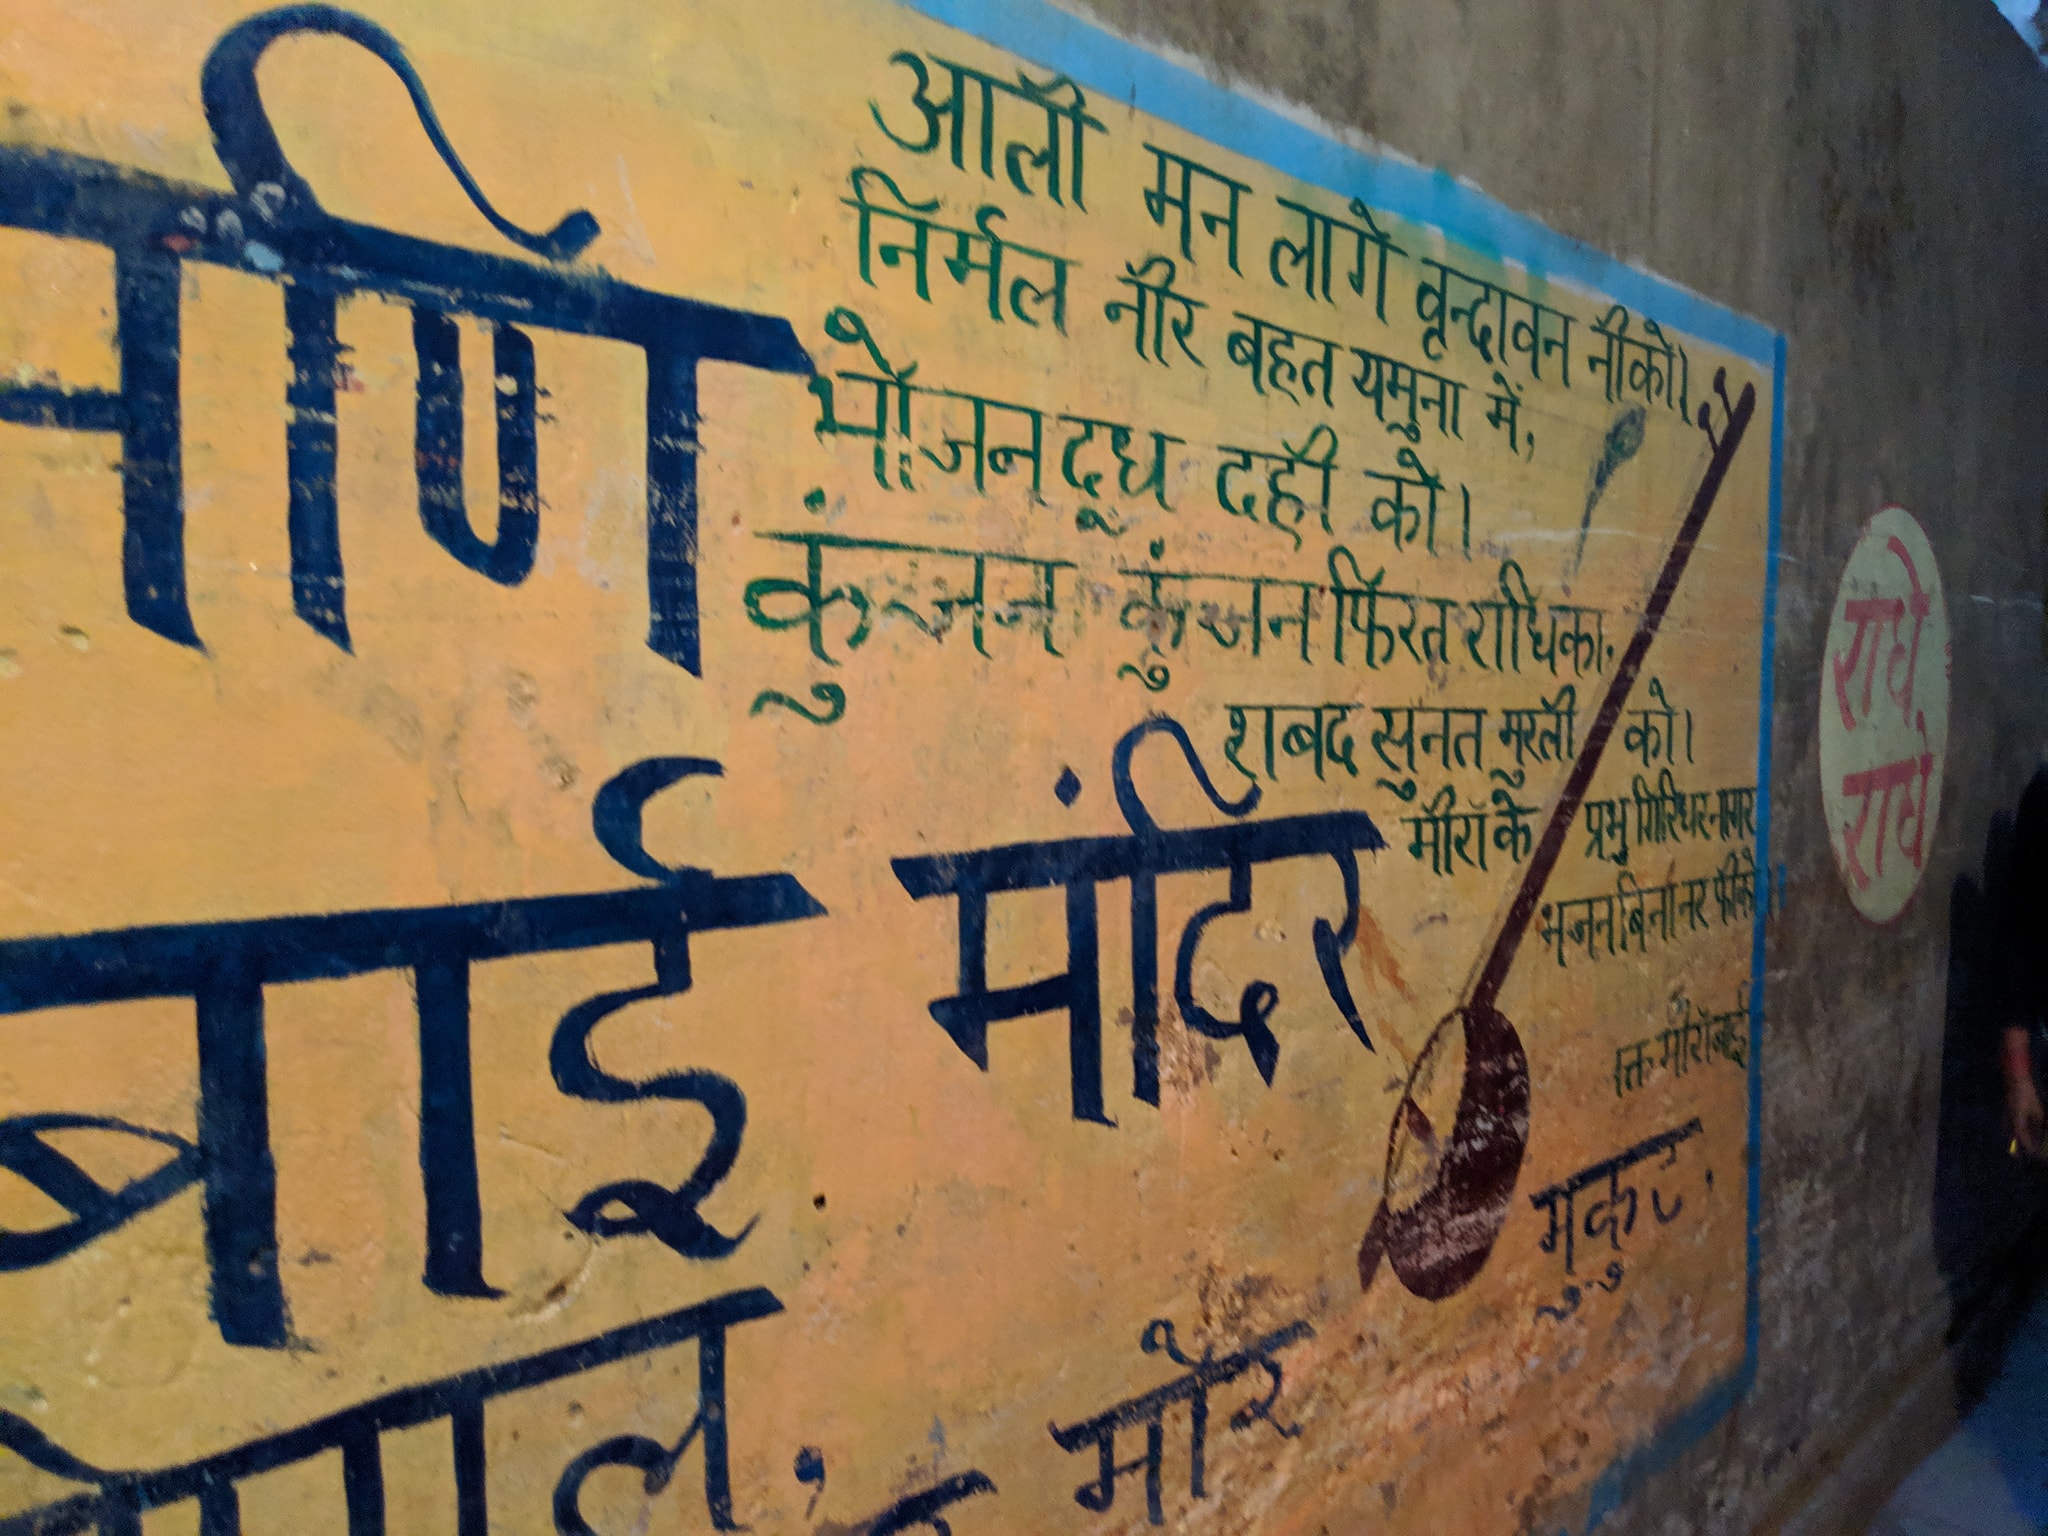 आली मन लागे वृन्दावन नीको।
निर्मल नीर बहत यमुना में,
भोजन दूध दही को।
कुंजन कुंजन फिरत राधिका,
शबद सुनत मुरली को।
मीराँ के प्रभु गिरिधर नागर
भजन बिना नर फीको।।
मीराँबाई
मणि
बाई मंदिर
पाल,
मोर
मुकुट
राधे
राधे